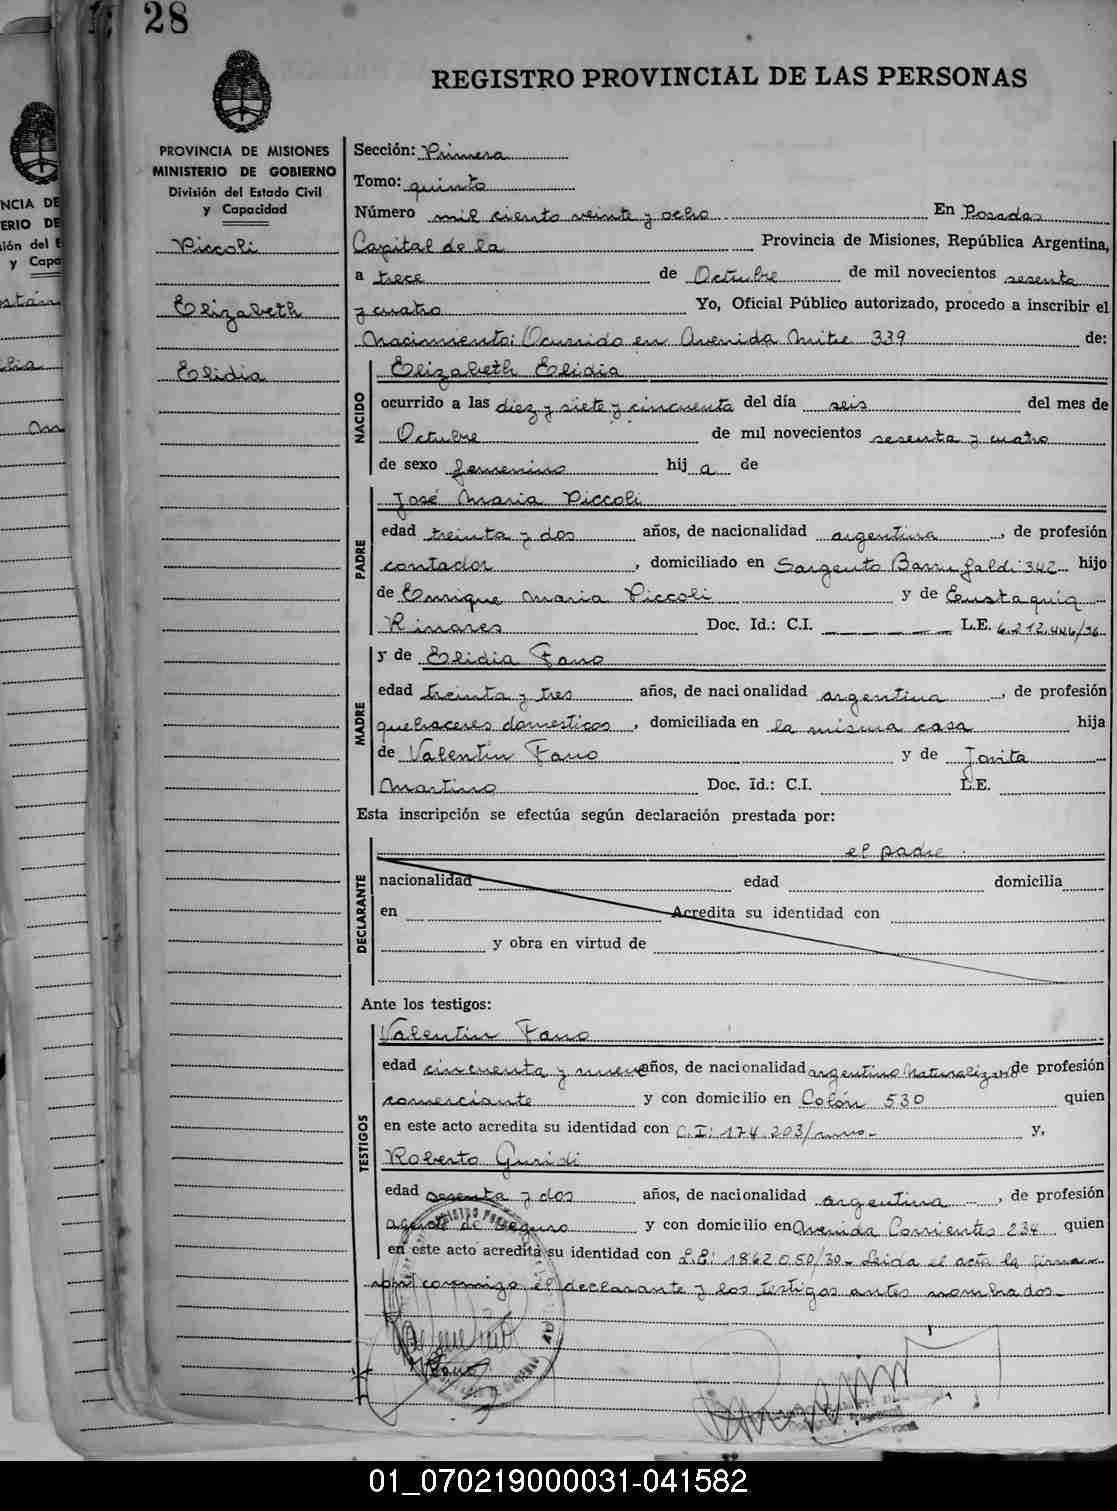 28
REGISTRO PROVINCIAL DE LAS PERSONAS
PROVINCIA DE MISIONES
MINISTERIO DE GOBIERNO
División del Estado Civil
y Capacidad
Piccoli
Elizabeth
Elidia
Sección: Primera
Tomo: quinto
Número mil ciento veinte y ocho En Posadas
Capital de la Provincia de Misiones, República Argentina,
a trece de Octubre de mil novecientos sesenta
y cuatro Yo, Oficial Público autorizado, procedo a inscribir el
Nacimiento: Ocurrido en Avenida Mitre 339 de:
NACIDO
Elizabeth Elidia
ocurrido a las diez y siete y cincuenta del día seis del mes de
Octubre de mil novecientos sesenta y cuatro
de sexo femenino hij a de
PADRE
José Maria Piccoli
edad treinta y dos años, de nacionalidad argentina, de profesión
contador, domiciliado en Sargento 342 hijo
de Enrique Maria Piccoli y de Eustaquia
Linares Doc. Id.: C.I. L.E. 6.212.446/56
MADRE
y de Elidia Fano
edad treinta y tres años, de nacionalidad argentina, de profesión
quehaceres domesticos, domiciliada en la misma casa hija
de Valentin Fano y de Jovita
Martino Doc. Id.: C.I. L.E.
Esta inscripción se efectúa según declaración prestada por:
DECLARANTE
el padre.
nacionalidad edad domicilia
en Acredita su identidad con
y obra en virtud de
Ante los testigos:
TESTIGOS
Valentin Fano
edad cincuenta y nueve años, de nacionalidad argentino naturalizado de profesión
comerciante y con domicilio en Colón 530 quien
en este acto acredita su identidad con C.I: 174.203/ y,
Roberto Guridi
edad sesenta y dos años, de nacionalidad argentina, de profesión
agente de seguro y con domicilio en Avenida Corrientes 234 quien
en este acto acredita su identidad con L.E: 1862050/30- Leida el acta la firma
conmigo el declarante y los testigos antes nombrados-
01_070219000031-041582